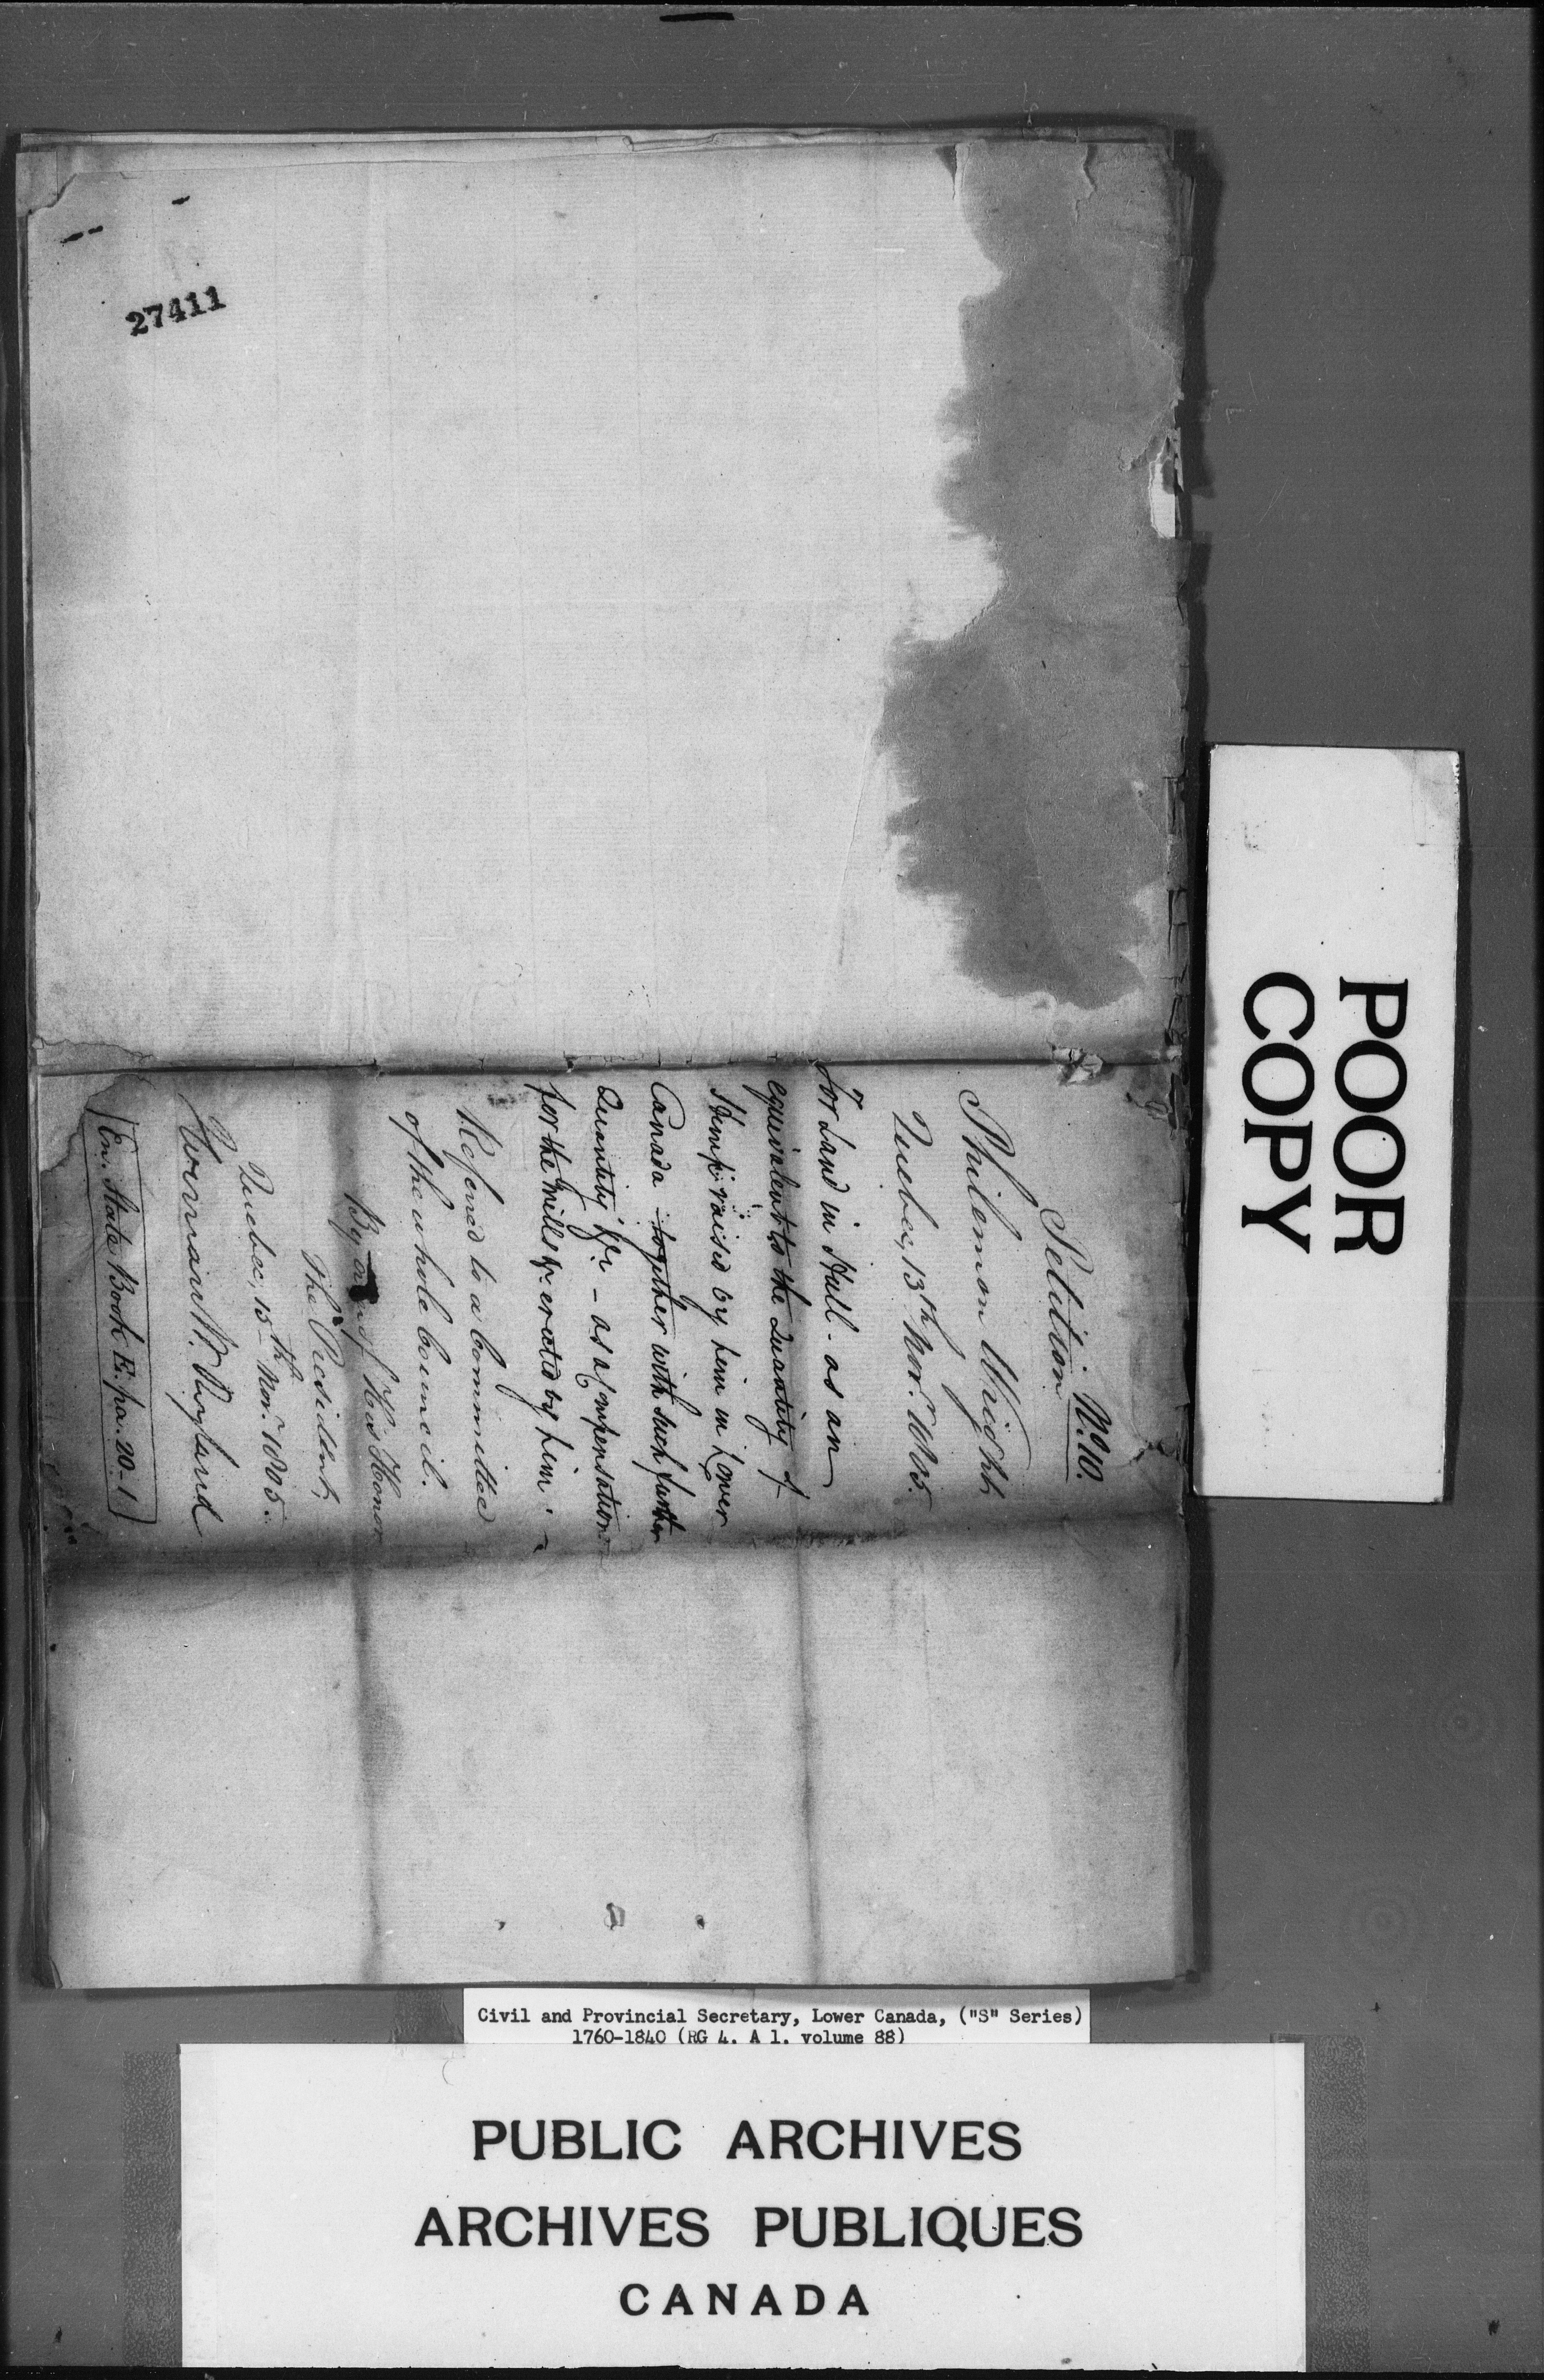 27411
No. 10.
Petition
Philemon Wright
Quebec, 13th Nov.r 1805.
For Land in Hull - as an
equivalent to the Quantity of
Hemp raised by him in Lower
Canada - together with such further
Quantity &c - as a Compensation
for the Mills &c. erected by him. -
Referred to a Committee
of the whole Council.
By of His Honor
The President,
Quebec, 15th Nov.r 1805.
Herman W. Ryland
En. State Book E. pa. 20-1
POOR
COPY
Civil and Provincial Secretary, Lower Canada, ("S" Series)
1760-1840 (RG 4. A 1. volume 88)
PUBLIC ARCHIVES
ARCHIVES PUBLIQUES
CANADA